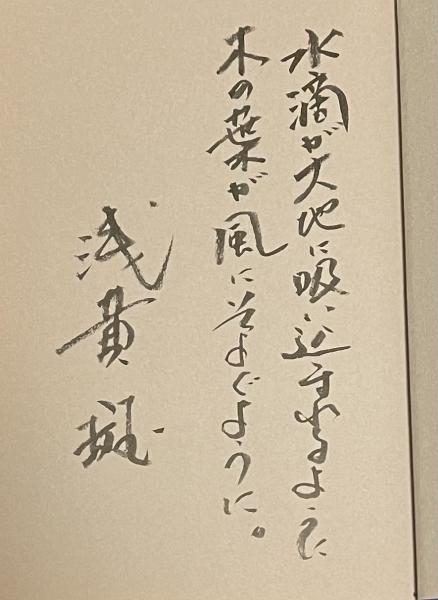 水滴が大地に吸い込まれるように
木の葉が風にそよぐように。
浅黄斑